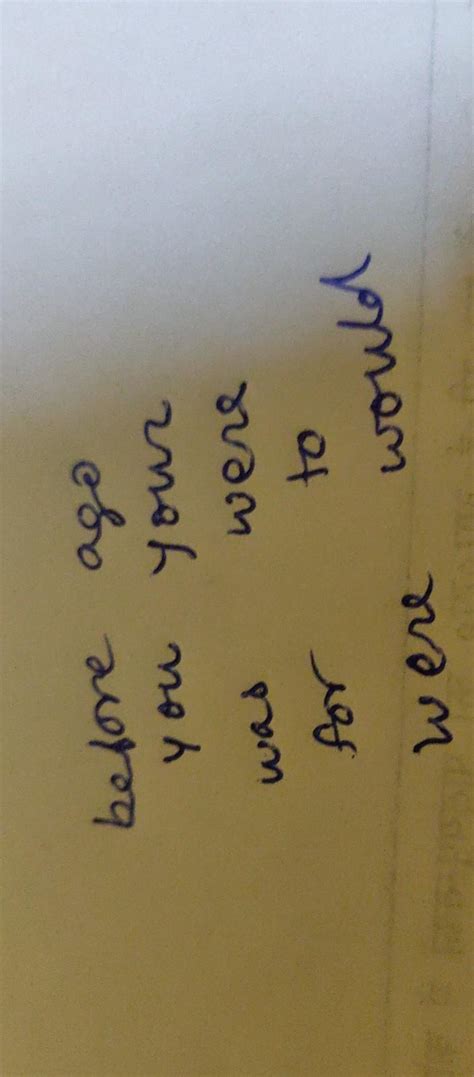 before ago
you your
was were
for to
were would